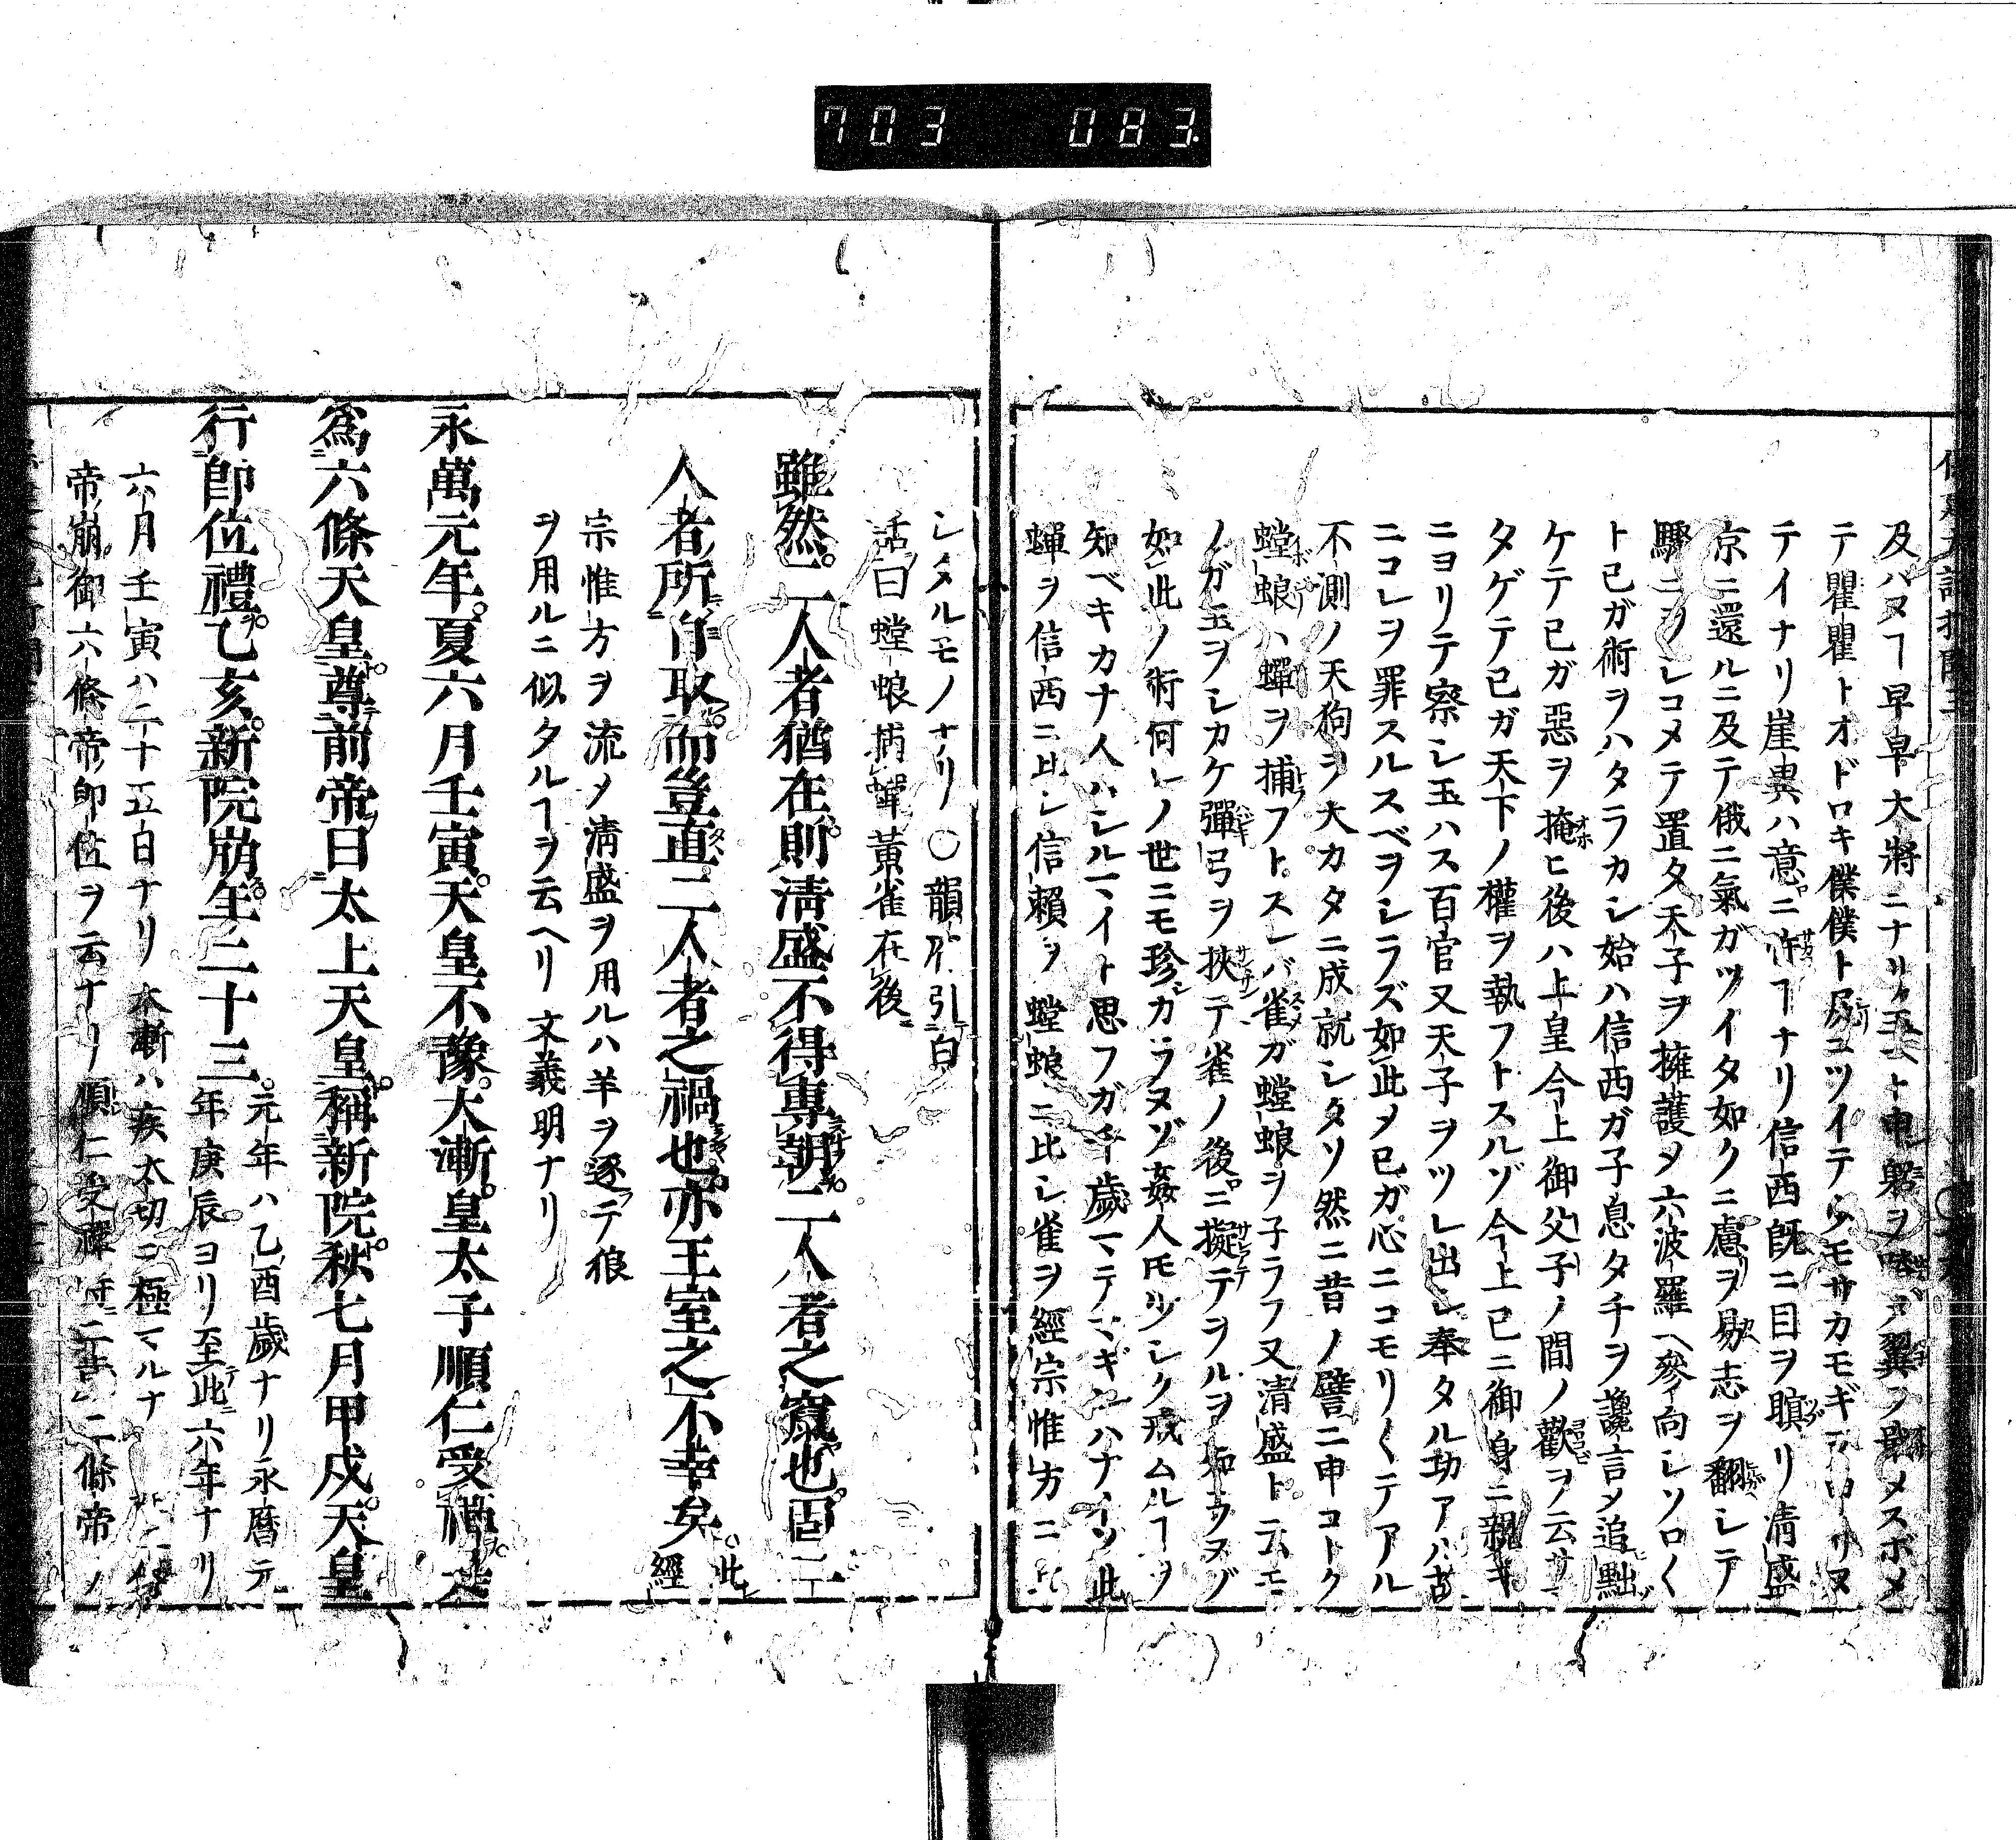 703 083
及ハヌヿ早早大將ニナリ玉ヘト申
テ瞿瞿トオドロキ僕僕ト尻ニツイテ
テイナリ崖異ハ意ニ忤ヿナリ信西既ニ目ヲ瞋リ淸盛
京ニ還ルニ及テ俄ニ氣ガツイタ如クニ慮ヲ易志ヲ翻シテ
レコメテ置タ天子ヲ擁護メ六波羅ヘ參向シソロ〱
ト己ガ術ヲハタラカシ始ハ信西ガ子息タチヲ讒言メ追黜
ケテ己ガ惡ヲ掩ヒ後ハ上皇今上御父子ノ間ノ歡ヲ云サマ
タゲテ己ガ天下ノ權ヲ執フトスルゾ今上已ニ御身ニ親ギ
ニヨリテ察シ玉ハス百官又天子ヲツレ出シ奉タル功アハ
ニコレヲ罪スルスベヲシラズ如此メ己ガ心ニコモリ〱テアル
不測ノ天狗ヲ大カタニ成就シタソ然ニ昔ノ譬ニ申コトク
螳蜋ハ蟬ヲ捕フトスレバ雀ガ螳蜋ヲ子ラフ又淸盛ト云モ
ノガ玉ヲシカケ彈弓ヲ挾テ雀ノ後ニ擬テヲルヲ知ラヌゾ
如此ノ術何レノ世ニモ珍ガラヌゾ姦人モ少シク戒ムルヿヲ
知ベキカナ人ハシルマイト思フガ千歲マテマギレハナイソ此
蟬ヲ信西ニ比シ信賴ヲ螳蜋ニ比シ雀ヲ經宗惟方ニ比
シタルモノナリ○韻府引白
話曰螳蜋捕蟬黃雀在後
雖然二人者猶在則淸盛不得專朝二人者之竄也固二
人者所自取而豈直二人者之禍也亦王室之不幸矣此經
宗惟方ヲ流メ淸盛ヲ用ルハ羊ヲ逐テ狼
ヲ用ルニ似タルヿヲ云ヘリ文義明ナリ
永萬元年夏六月壬寅天皇不豫大漸皇太子順仁受禪是
爲六條天皇尊前帝曰太上天皇稱新院秋七月甲戌天皇
行卽位禮乙亥新院崩年二十三元年ハ乙酉歲ナリ永曆元
年庚辰ヨリ至此六年ナリ
六月壬寅ハ二十五日ナリ大漸ハ疾太切ニ極マルナ
帝崩御六條帝卽位ヲ云ナリ順仁受禪二條帝ノ